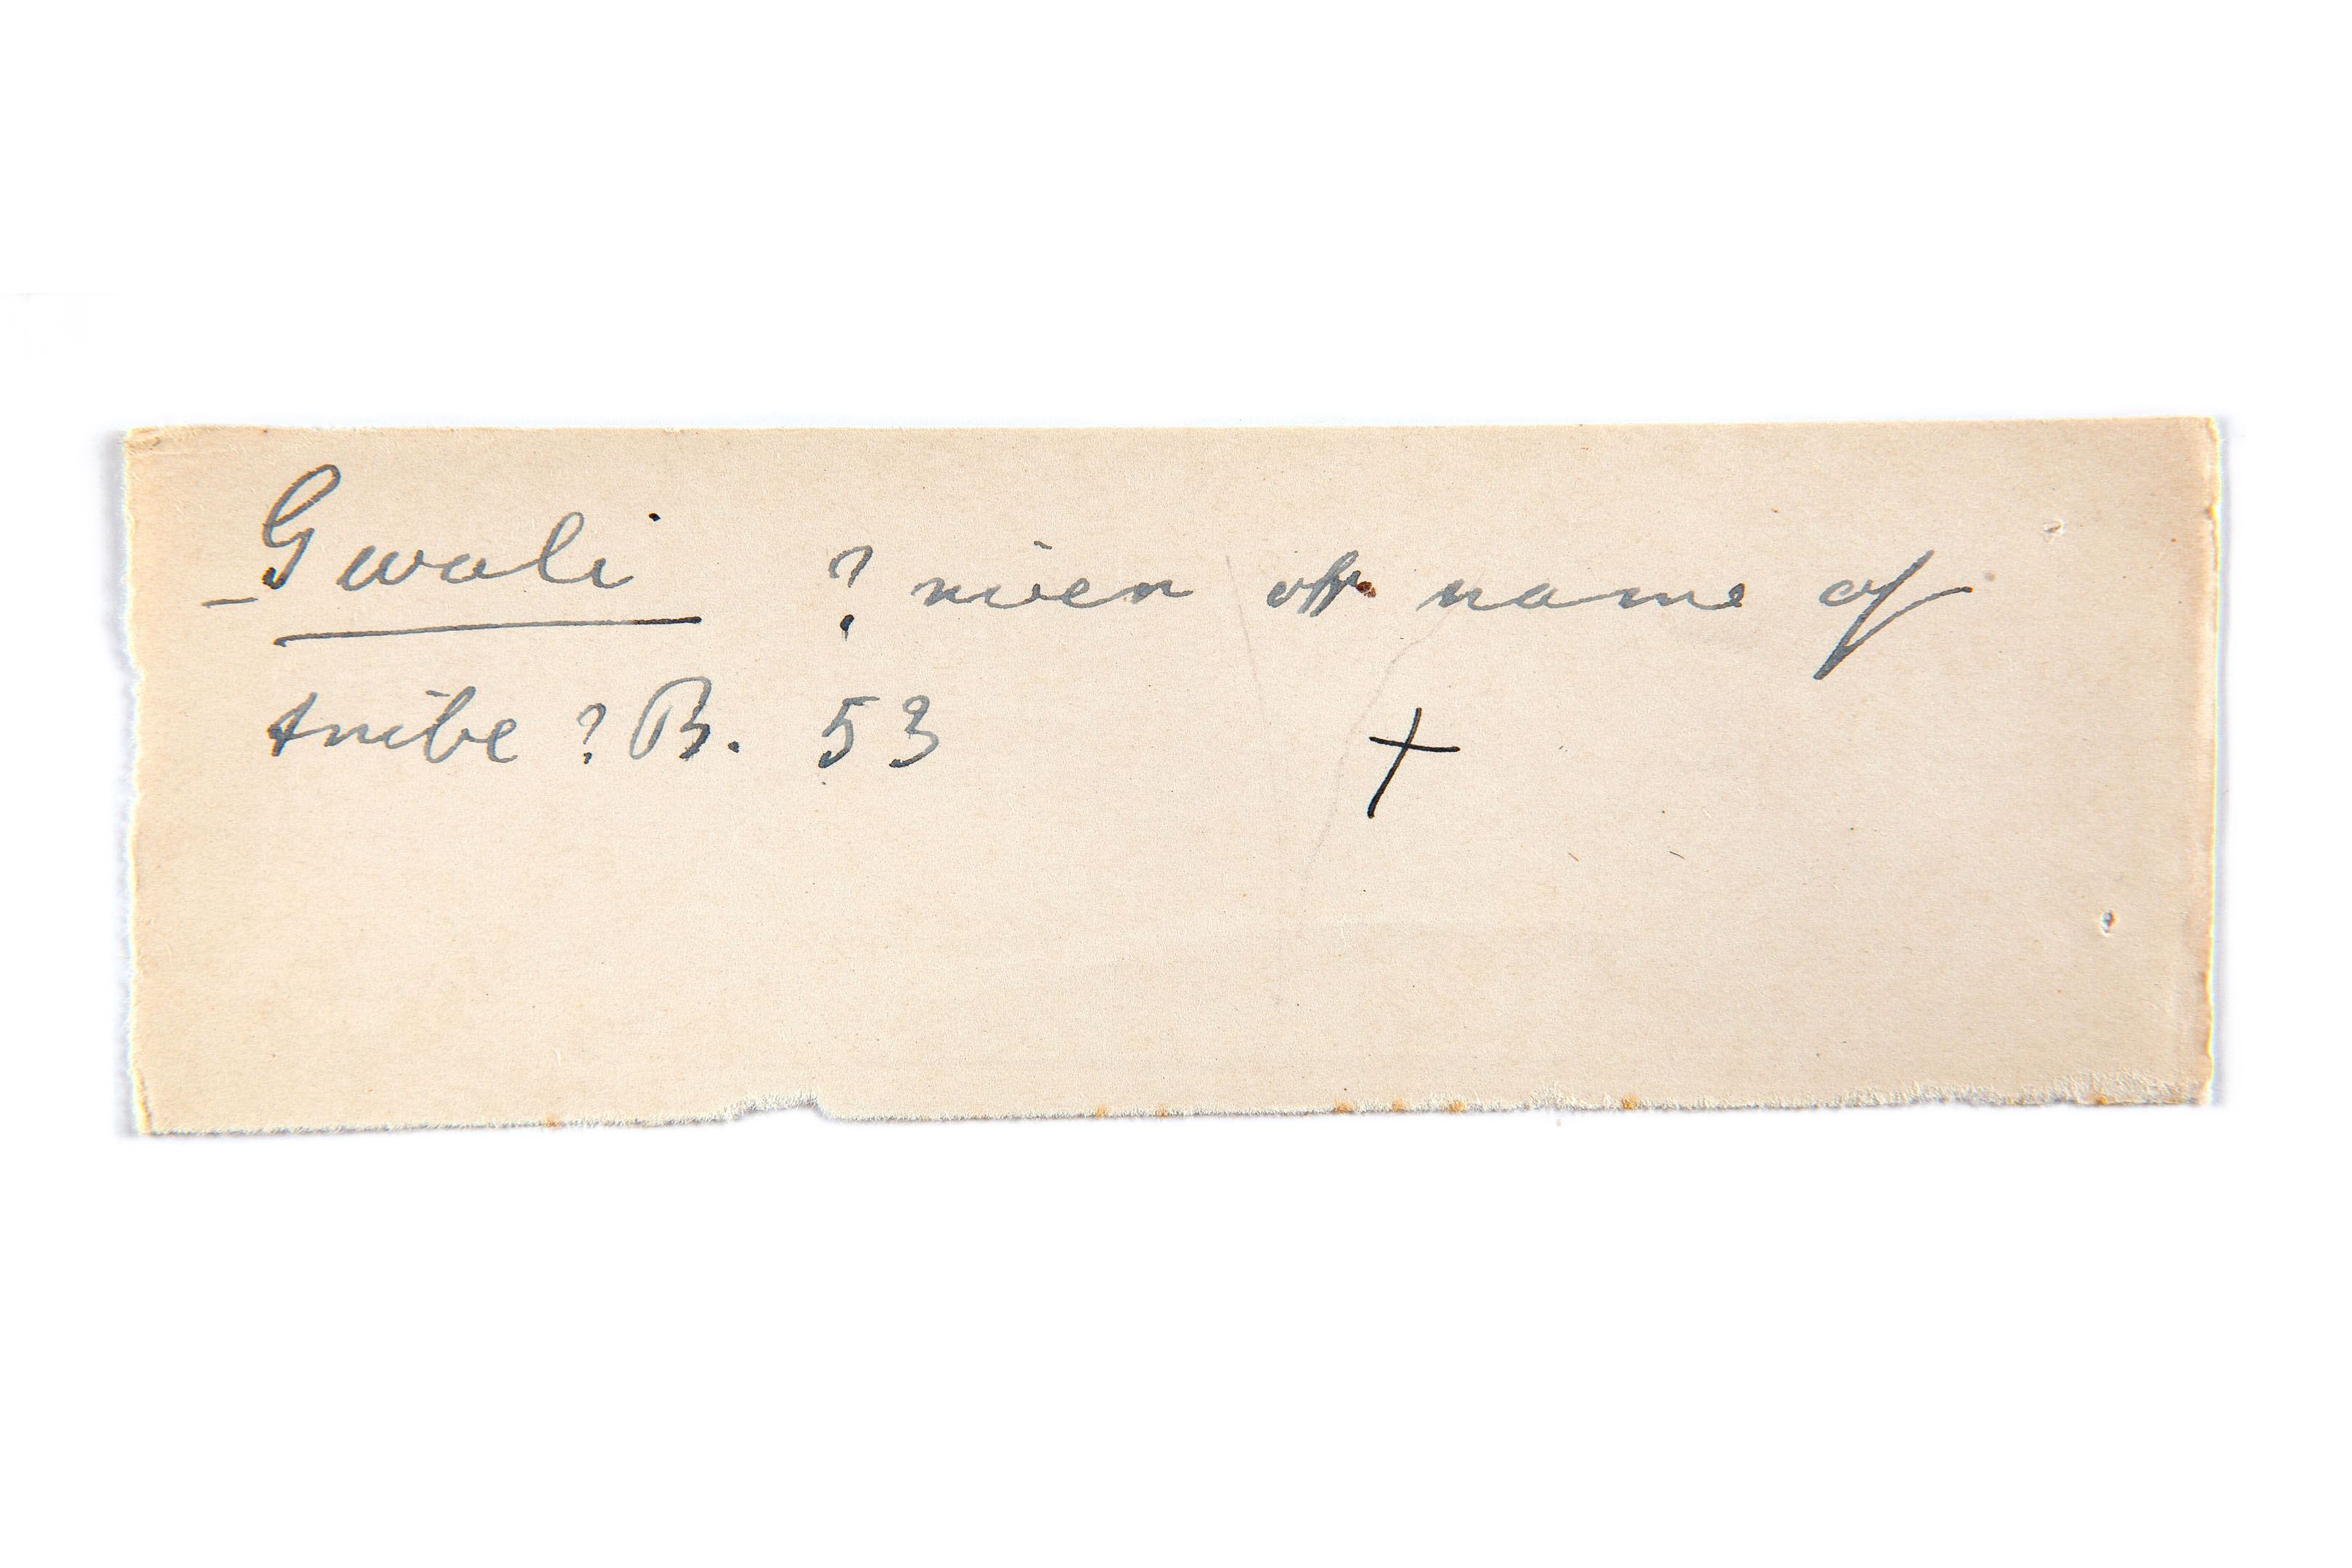 Gwali ? river or name of
tribe ? B. 53 +